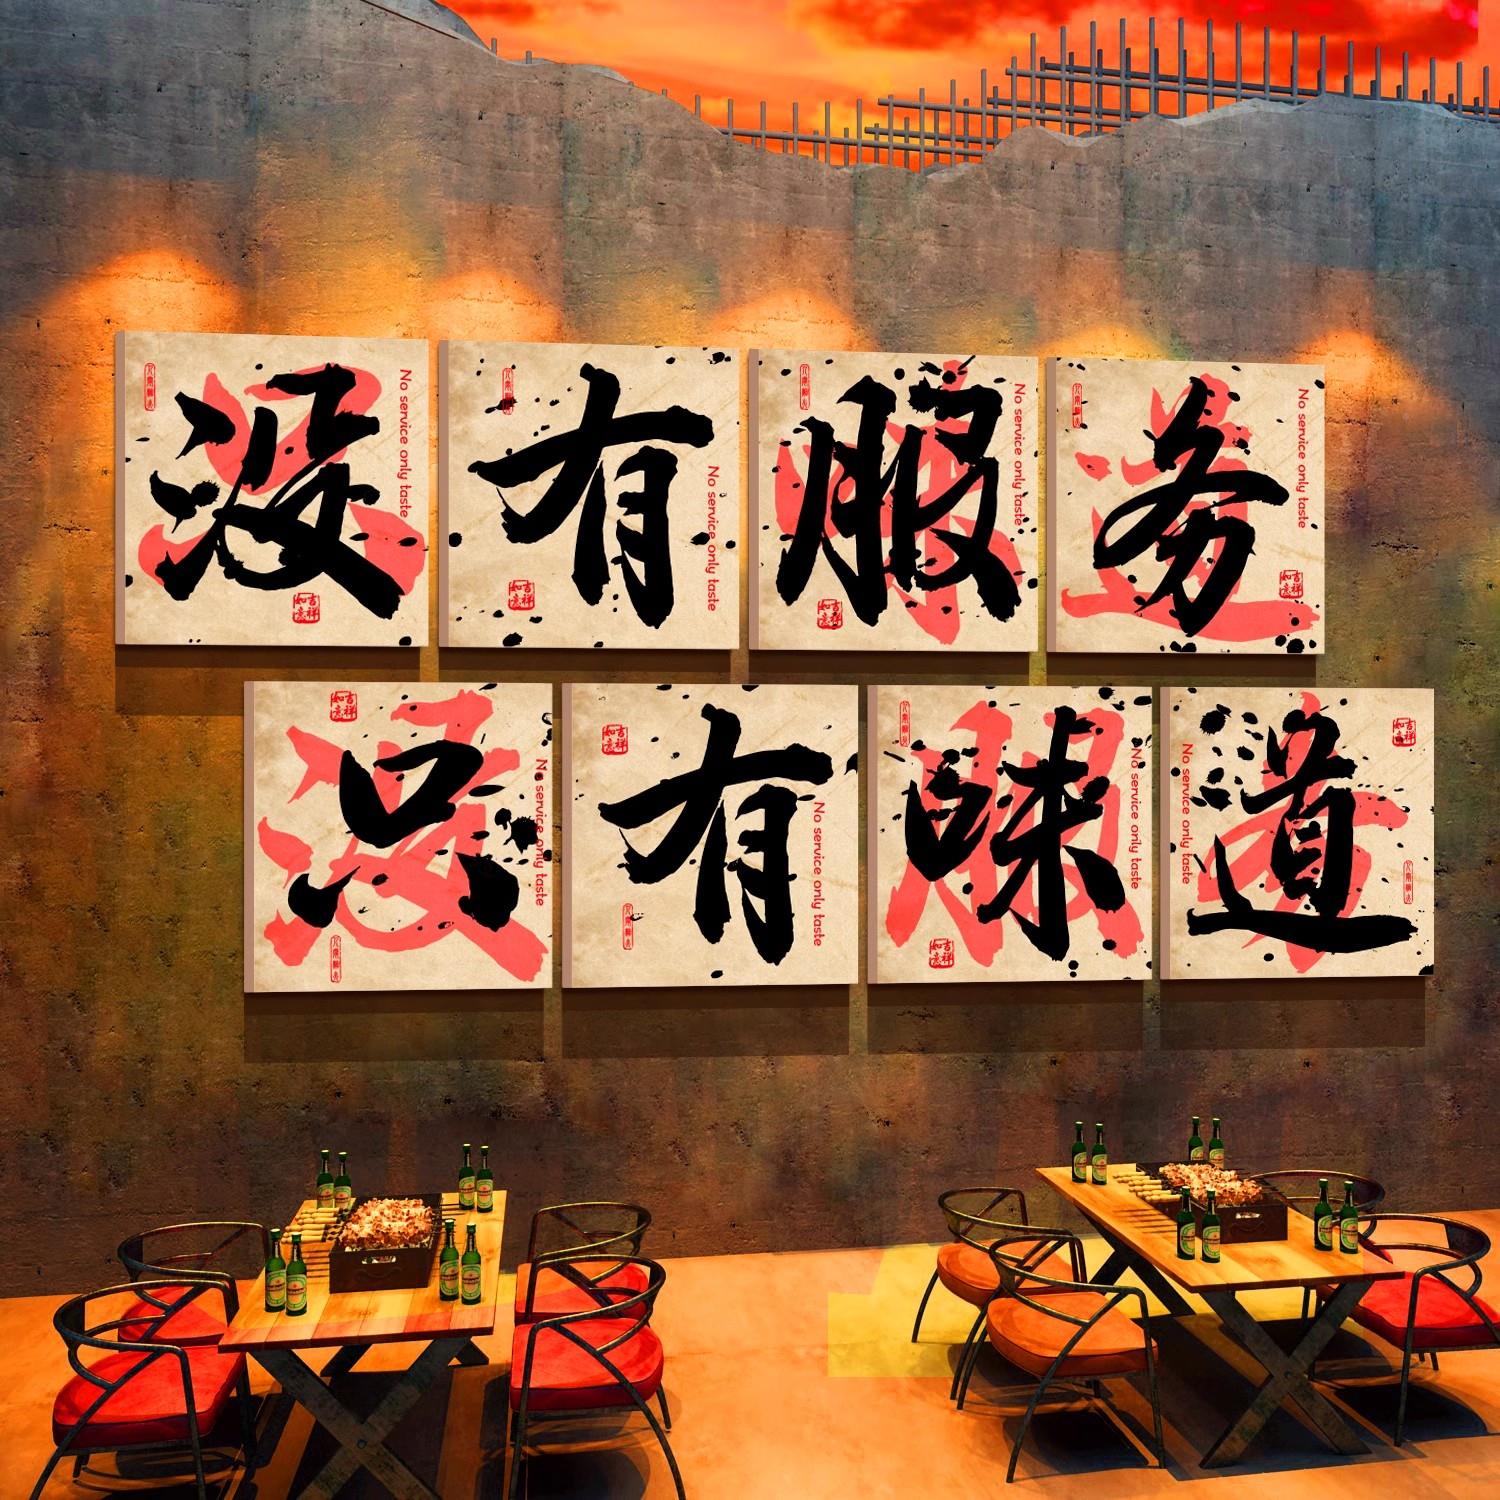 没有服务
只有味道
No service only taste
No service only taste
No service only taste
No service only taste
No service only taste
No service only taste
No service only taste
No service only taste
吉祥如意
吉祥如意
吉祥如意
吉祥如意
吉祥如意
吉祥如意
吉祥如意
吉祥如意